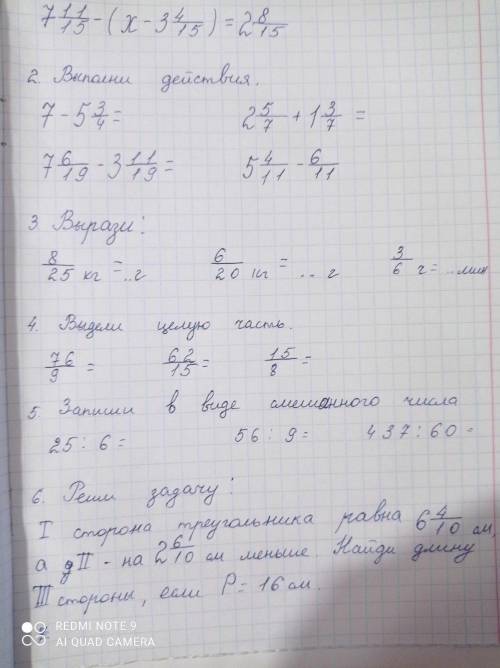 7 11/15 - (x - 3 4/15) = 2 8/15
2. Выполни действия.
7 - 5 3/4 = 2 5/7 + 1 3/7 =
7 6/19 - 3 11/19 = 5 4/11 - 6/11
3. Вырази:
8/25 кг = ..г 6/20 кг = .. г 3/6 ч = ..мин
4. Выдели целую часть.
76/9 = 62/15 = 15/8 =
5. Запиши в виде смешанного числа
25 : 6 = 56 : 9 = 437 : 60 =
6. Реши задачу:
I сторона треугольника равна 6 4/10 см,
а II - на 2 6/10 см меньше. Найди длину
III стороны, если P = 16 см.
REDMI NOTE 9
AI QUAD CAMERA